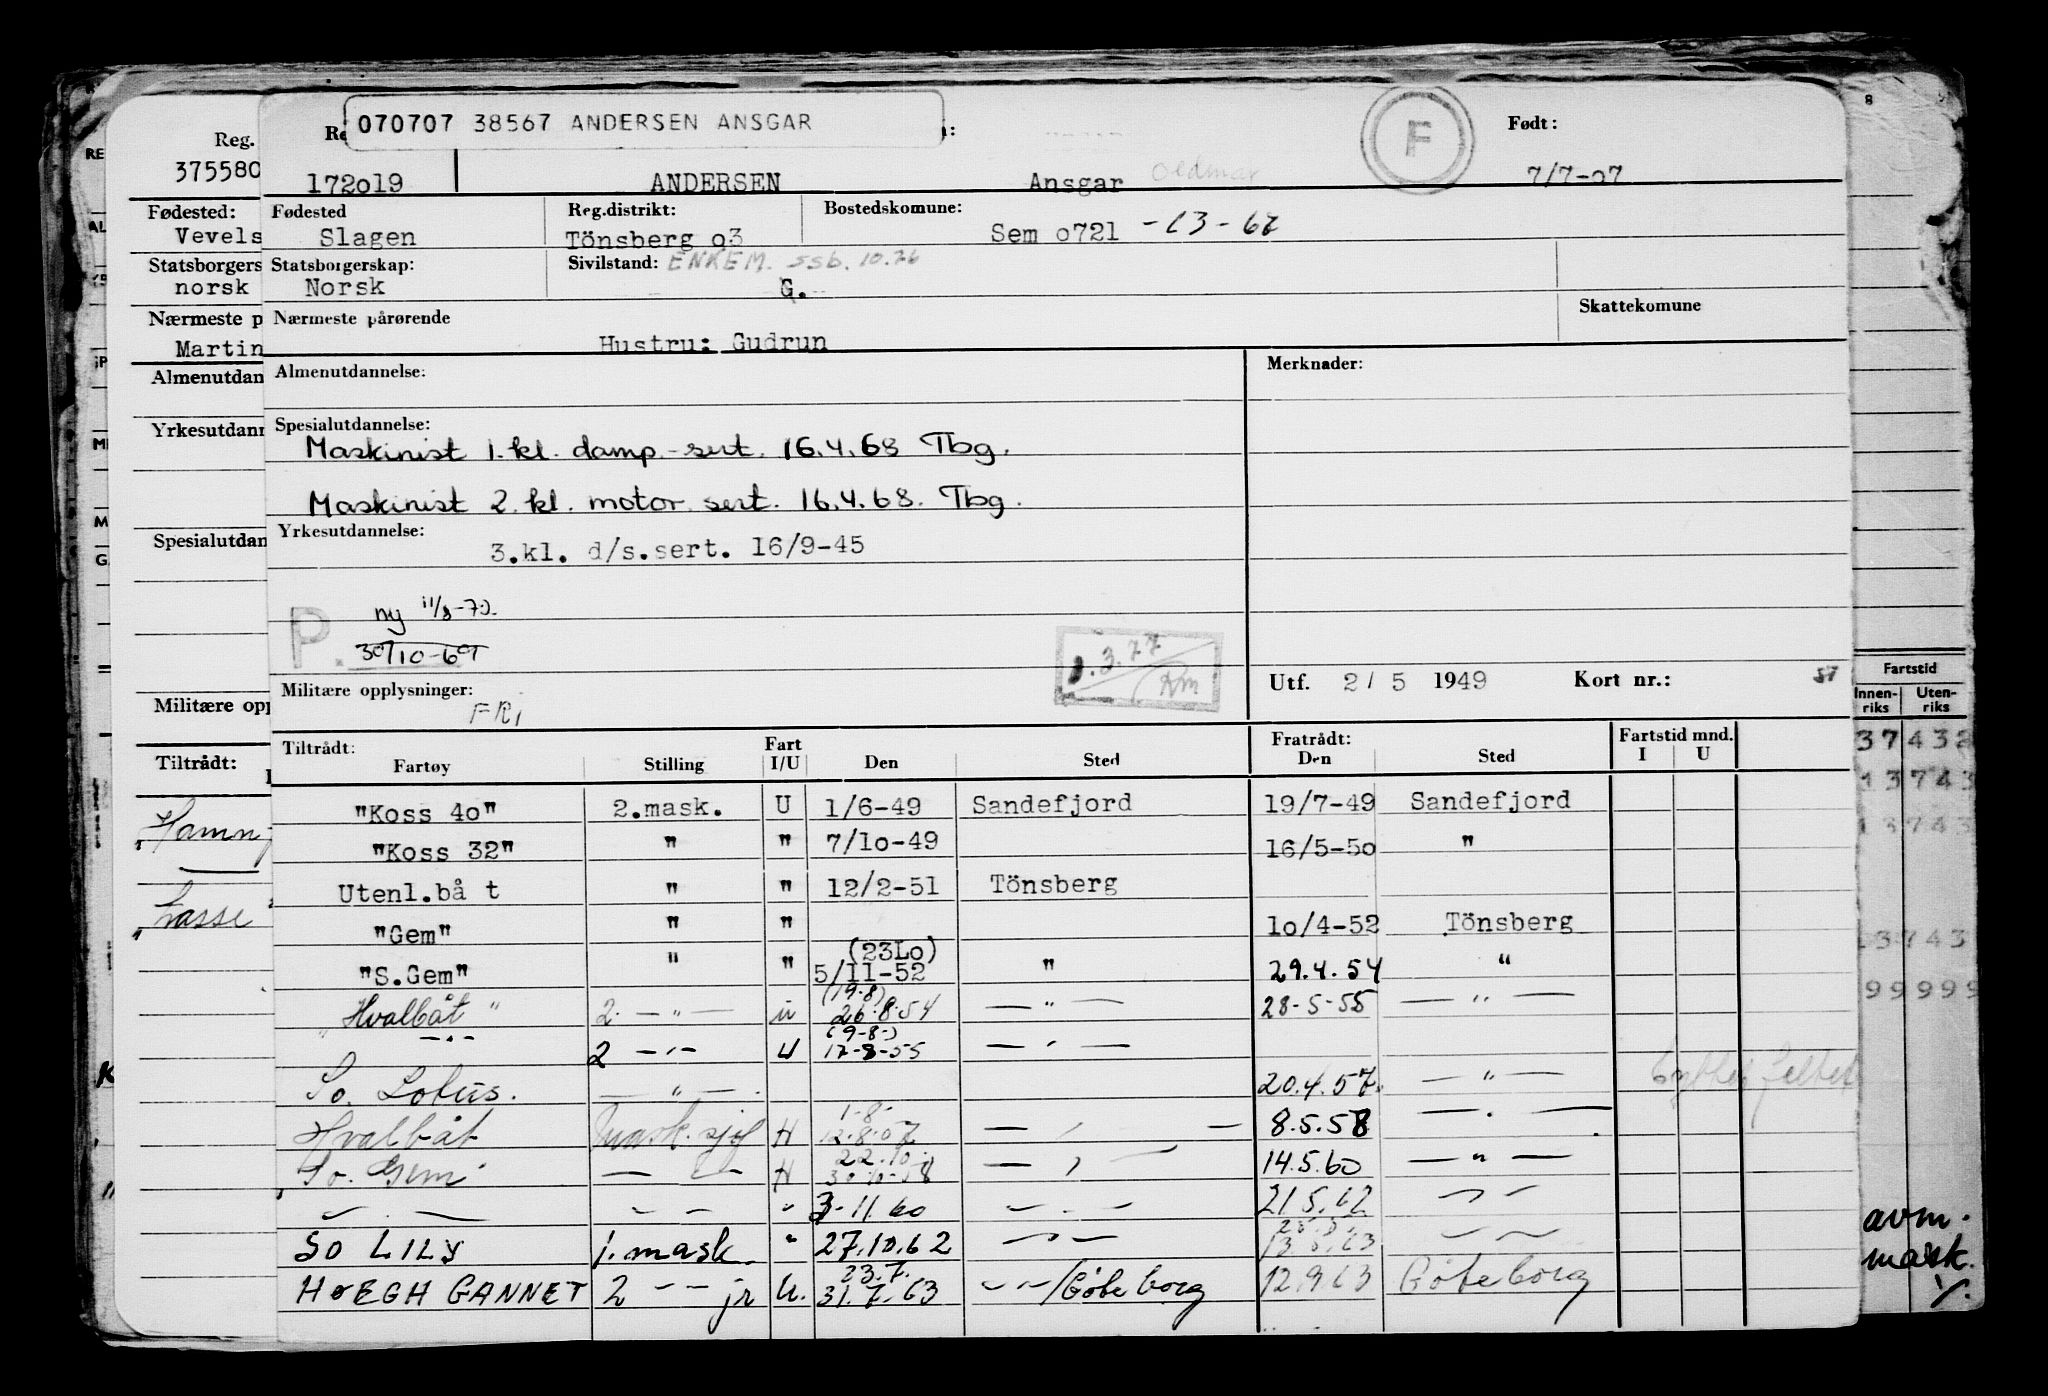 070707 38567 ANDERSEN ANSGAR
Født:
F
172o19 ANDERSEN Ansgar Oldmar 7/7-o7
Fødested Reg.distrikt: Bostedskomune:
Slagen Tönsberg o3 Sem o721 -13-67
Statsborgerskap: Sivilstand: ENKEM. SSB. 10.76
Norsk G.
Nærmeste pårørende Skattekomune
Hustru: Gudrun
Almenutdannelse: Merknader:
Spesialutdannelse:
Maskinist 1. kl. damp-sert. 16.4.68 Tbg.
Maskinist 2. kl. motor sert. 16.4.68. Tbg.
Yrkesutdannelse:
3.kl. d/s.sert. 16/9-45
P. ny 11/8-70.
30/10-69
1.3.77
Militære opplysninger: Utf. 2/ 5 1949 Kort nr.: 57
FRI
Tiltrådt: Fart Fratrådt: Fartstid mnd.
Fartøy Stilling I/U Den Sted Den Sted I U
"Koss 4o" 2.mask. U 1/6-49 Sandefjord 19/7-49 Sandefjord
"Koss 32" " " 7/1o-49 16/5-5o "
Utenl.bå t " " 12/2-51 Tönsberg
"Gem" " " 1o/4-52 Tönsberg
(23Lo)
"S.Gem" " " 5/11-52 " 29.4.54 "
(19.8)
"Hvalbåt" 2. — " — u 26.8.54 — " — 28-5-55 — " —
(9-8-)
— " — 2 — " — U 17-8-55 — " —
So. Lotus. — " — 20.4.57. — " —
1-8-
Hvalbåt Mask.sjef H 12.8.57 — " — 8.5.58 — " —
22.10.
So. Gem — " — H 30.10-58 — " — 14.5.60 — " —
— " — — " — " 3-11.60 — " — 21.5.62 — " —
SO LILY 1. mask. " 27.10.62 — " — 13.6.63 — " —
23.7.
HØEGH GANNET 2 — " — jr U. 31.7.63 — " —/Göteborg 12.9.63 Göteborg
Reg.
375580
Fødested:
Vevels
Statsborgers
norsk
Nærmeste p
Martin
Almenutdan
Yrkesutdann
Spesialutdan
Militære opp
Tiltrådt:
Hamn
Lasse
Fartstid
Innen-riks Uten-riks
37 432
13 743
13 743
13 743
99 999
avm.
mask.